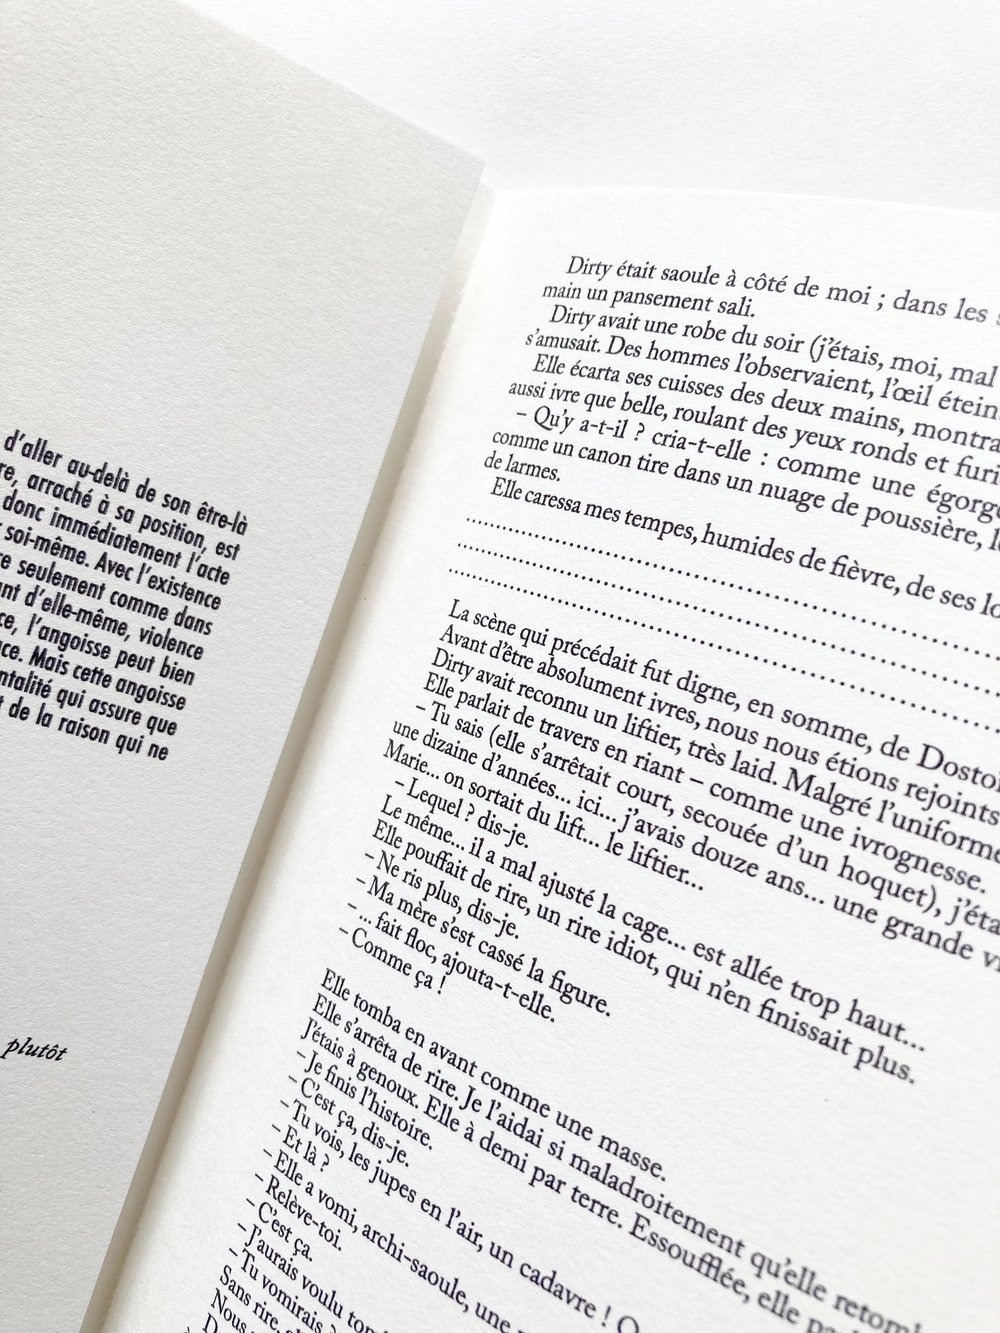 d'aller au-delà de son être-là
re, arraché à sa position, est
donc immédiatement l'acte
soi-même. Avec l'existence
re seulement comme dans
nt d'elle-même, violence
ce, l'angoisse peut bien
ace. Mais cette angoisse
ntalité qui assure que
t de la raison qui ne
plutôt
Dirty était saoule à côté de moi ; dans les
main un pansement sali.
Dirty avait une robe du soir (j'étais, moi, mal
s'amusait. Des hommes l'observaient, l'œil étein
Elle écarta ses cuisses des deux mains, montra
aussi ivre que belle, roulant des yeux ronds et furi
– Qu'y a-t-il ? cria-t-elle : comme une égorg
comme un canon tire dans un nuage de poussière, l
de larmes.
Elle caressa mes tempes, humides de fièvre, de ses lo
La scène qui précédait fut digne, en somme, de Dostoï
Avant d'être absolument ivres, nous nous étions rejoints
Dirty avait reconnu un liftier, très laid. Malgré l'uniforme
Elle parlait de travers en riant – comme une ivrognesse.
– Tu sais (elle s'arrêtait court, secouée d'un hoquet), j'éta
une dizaine d'années... ici... j'avais douze ans... une grande v
Marie... on sortait du lift... le liftier...
– Lequel ? dis-je.
Le même... il a mal ajusté la cage... est allée trop haut...
Elle pouffait de rire, un rire idiot, qui n'en finissait plus.
– Ne ris plus, dis-je.
– Ma mère s'est cassé la figure.
– ... fait floc, ajouta-t-elle.
– Comme ça !
Elle tomba en avant comme une masse.
Elle s'arrêta de rire. Je l'aidai si maladroitement qu'elle retomb
J'étais à genoux. Elle à demi par terre. Essoufflée, elle pa
– Je finis l'histoire.
– C'est ça, dis-je.
– Tu vois, les jupes en l'air, un cadavre ! O
– Et là ?
– Elle a vomi, archi-saoule, une
– Relève-toi.
– C'est ça.
– J'aurais voulu to
– Tu vomirais
Sans rire,
Nous